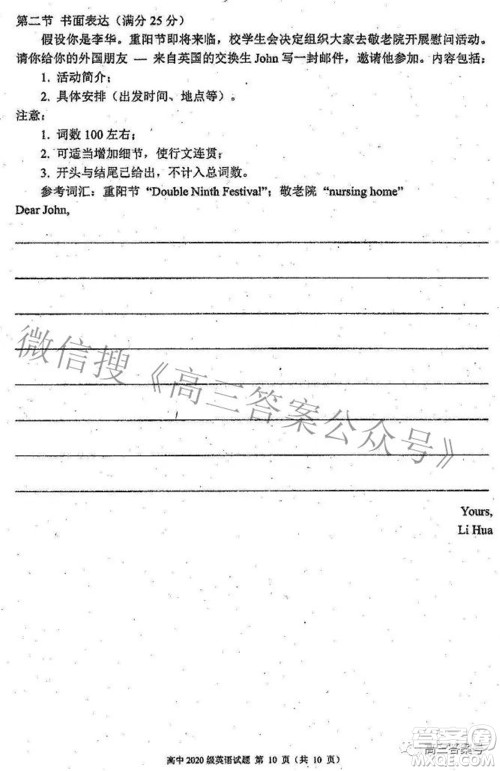 第二节 书面表达（满分 25 分）
假设你是李华。重阳节即将来临，校学生会决定组织大家去敬老院开展慰问活动。
请你给你的外国朋友 — 来自英国的交换生 John 写一封邮件，邀请他参加。内容包括：
1. 活动简介；
2. 具体安排（出发时间、地点等）。
注意：
1. 词数 100 左右；
2. 可适当增加细节，使行文连贯；
3. 开头与结尾已给出，不计入总词数。
参考词汇：重阳节 “Double Ninth Festival”；敬老院 “nursing home”
Dear John,
微信搜《高三答案公众号》
Yours,
Li Hua
高中 2020 级英语试题 第 10 页（共 10 页）
高三答案号
答案圈
MXQE.COM